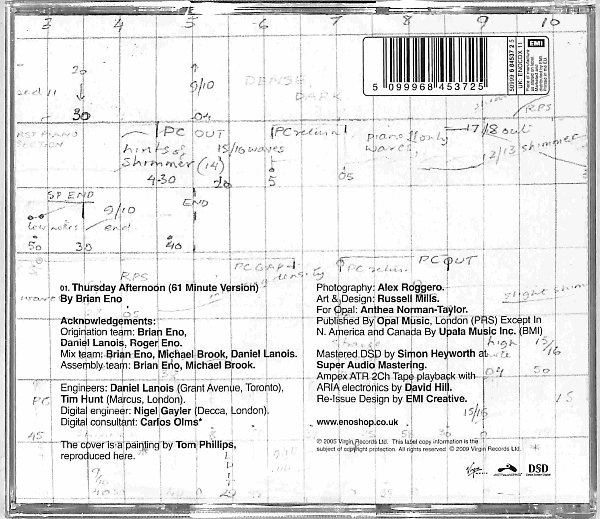 3 4 5 6 7 8 9 10
DENSE
DARK
9/10
30
04
PC OUT
hints of
shimmer (14)
15/16 waves
4-30
20
5
05
piano only
17/8 out
RPS
12/13 shimmer
SP END
END
low notes
9/10
end
50 30 40
RPS
PC OUT
5 099968 453725
EMI
01. Thursday Afternoon (61 Minute Version)
By Brian Eno
Acknowledgements:
Origination team: Brian Eno,
Daniel Lanois, Roger Eno.
Mix team: Brian Eno, Michael Brook, Daniel Lanois.
Assembly team: Brian Eno, Michael Brook.
Engineers: Daniel Lanois (Grant Avenue, Toronto),
Tim Hunt (Marcus, London).
Digital engineer: Nigel Gayler (Decca, London).
Digital consultant: Carlos Olms*
The cover is a painting by Tom Phillips,
reproduced here.
Photography: Alex Roggero.
Art & Design: Russell Mills.
For Opal: Anthea Norman-Taylor.
Published By Opal Music, London (PRS) Except In
N. America and Canada By Upala Music Inc. (BMI)
Mastered DSD by Simon Heyworth at
Super Audio Mastering.
Ampex ATR 2Ch Tape playback with
ARIA electronics by David Hill.
Re-Issue Design by EMI Creative.
www.enoshop.co.uk
℗ 2005 Virgin Records Ltd. This label copy information is the
subject of copyright protection. All rights reserved. © 2009 Virgin Records Ltd.
slight shim
high
15/16
04 50
15/16
15
PC
45
DSD